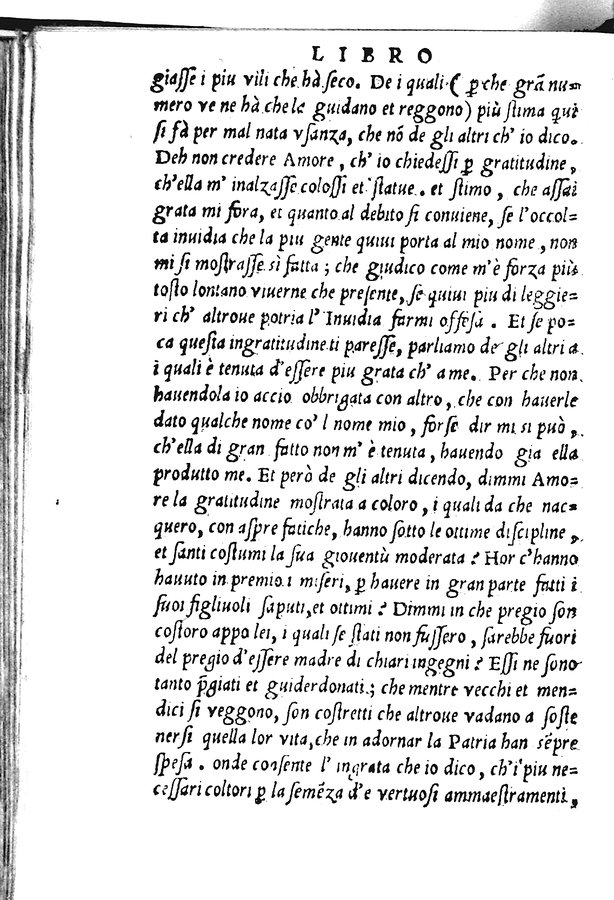 LIBRO
giaſſe i piu vili che hà ſeco. De i quali ( ꝑ che grã nu=
mero ve ne hà che le guidano et reggono) più ſtima qui
ſi fà per mal nata vſanza, che nõ de gli altri ch' io dico.
Deh non credere Amore, ch' io chiedeſſi ꝑ gratitudine,
ch'ella m' inalzaſſe coloſſi et ſtatue. et ſtimo, che aſſai
grata mi fora, et quanto al debito ſi conuiene, ſe l'occol=
ta inuidia che la piu gente quiui porta al mio nome, non
mi ſi moſtraſſe sì fatta; che giudico come m'è forza più
toſto lontano viuerne che preſente, ſe quiui piu di leggie=
ri ch' altroue potria l' Inuidia farmi offeſa. Et ſe po=
ca queſta ingratitudine ti pareſſe, parliamo de gli altri a
i quali è tenuta d'eſſere piu grata ch' a me. Per che non
hauendola io acciò obbrigata con altro, che con hauerle
dato qualche nome co' l nome mio, forſe dir mi si può,
ch'ella di gran fatto non m' è tenuta, hauendo gia ella
produtto me. Et però de gli altri dicendo, dimmi Amo=
re la gratitudine moſtrata a coloro, i quali da che nac=
quero, con aſpre fatiche, hanno ſotto le ottime diſcipline,
et ſanti coſtumi la ſua giouentù moderata? Hor c'hanno
hauuto in premio i miſeri, ꝑ hauere in gran parte fatti i
ſuoi figliuoli ſaputi, et ottimi? Dimmi in che pregio ſon
coſtoro appo lei, i quali ſe ſtati non fuſſero, ſarebbe fuori
del pregio d'eſſere madre di chiari ingegni? Eſſi ne ſono
tanto p̃giati et guiderdonati; che mentre vecchi et men=
dici ſi veggono, ſon coſtretti che altroue vadano a ſoſte
nerſi quella lor vita, che in adornar la Patria han sẽpre
ſpeſa. onde conſente l' ingrata che io dico, ch'i piu ne=
ceſſari coltori ꝑ la ſemẽza d'e vertuoſi ammaeſtramenti,